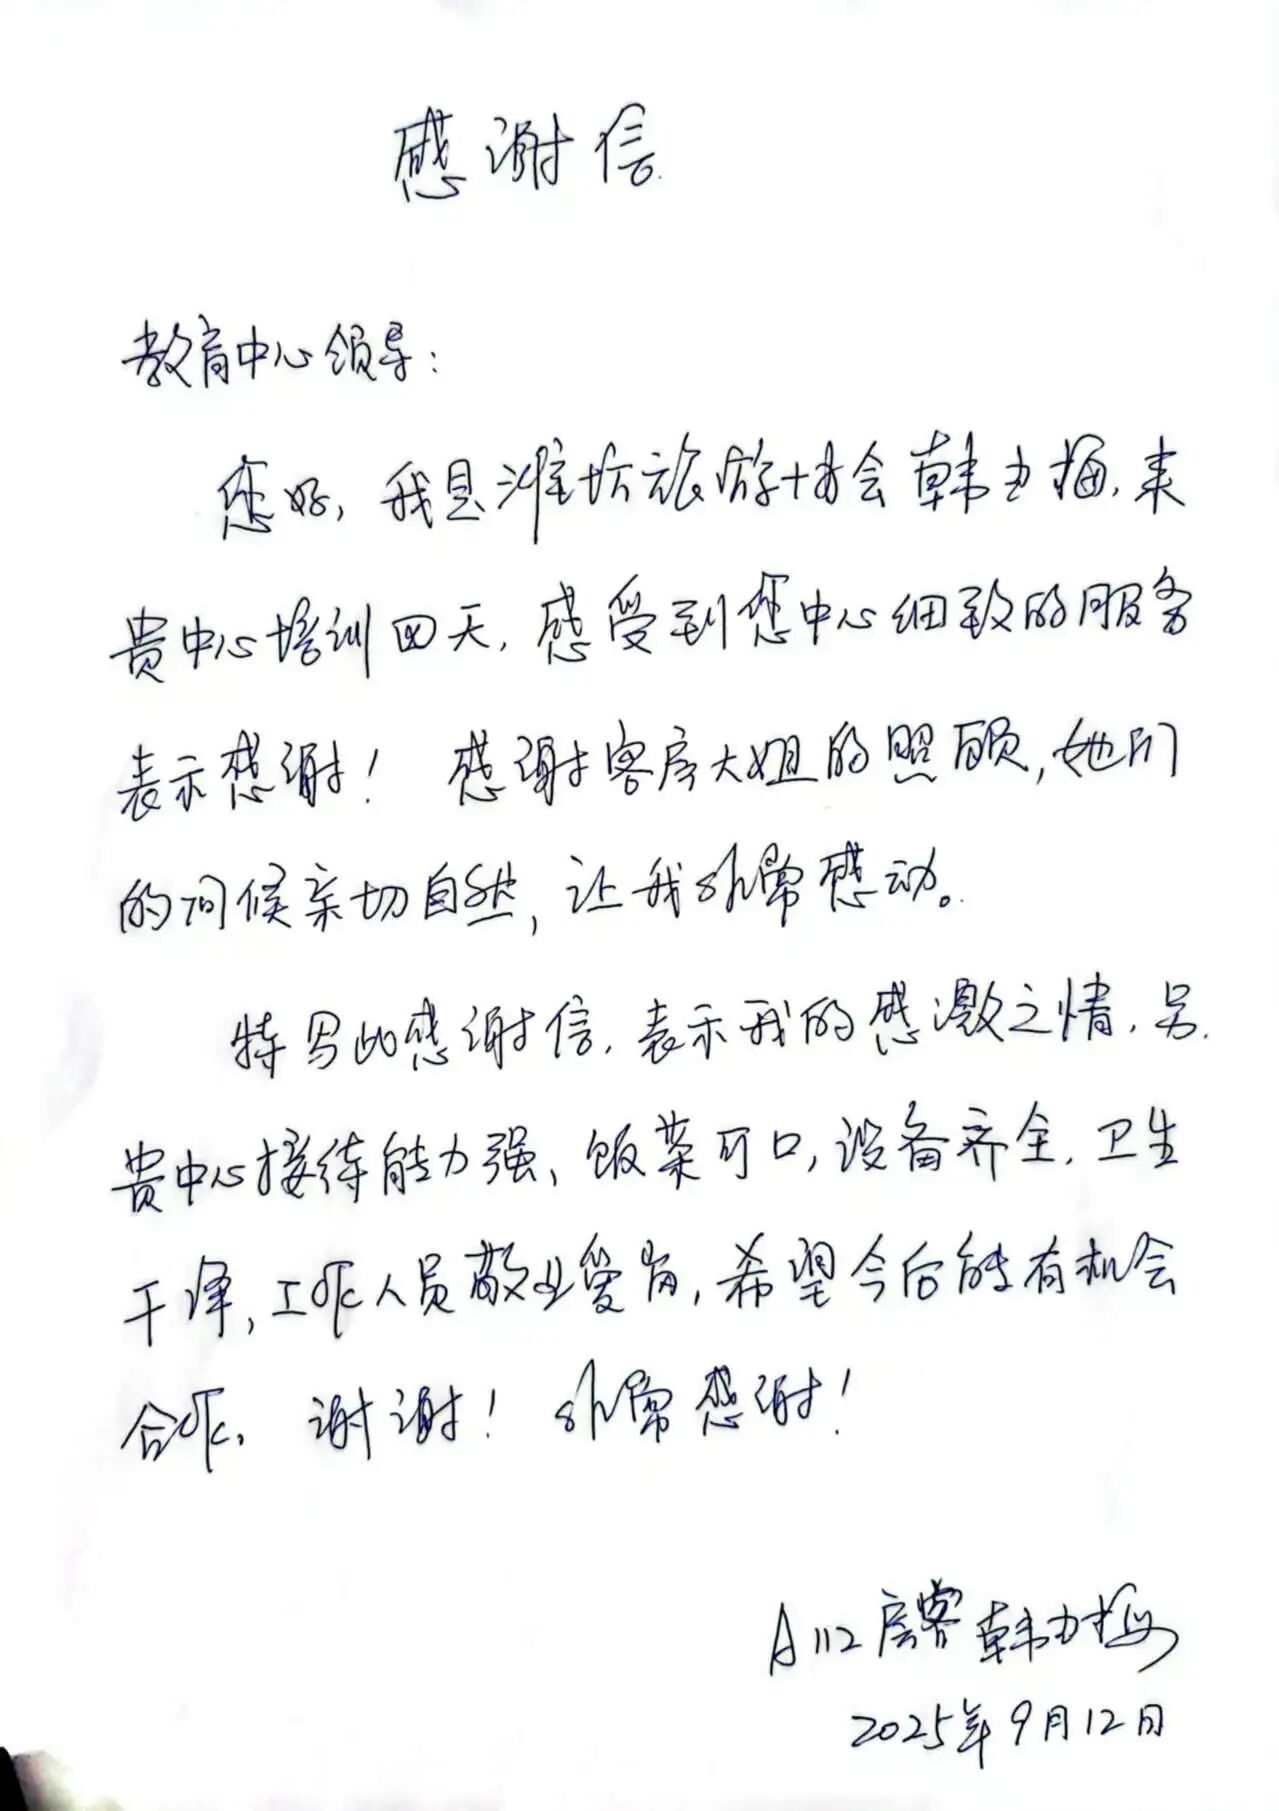 感谢信
教育中心领导:
您好,我是潍坊旅游协会韩梅,来
贵中心培训四天,感受到您中心细致的服务
表示感谢! 感谢客房大姐的照顾,她们
的问候亲切自然,让我非常感动。
特写此感谢信,表示我的感激之情,另,
贵中心接待能力强、饭菜可口,设备齐全,卫生
干净,工作人员敬业爱岗,希望今后能有机会
合作,谢谢!非常感谢!
A112房客韩梅
2025年9月12日